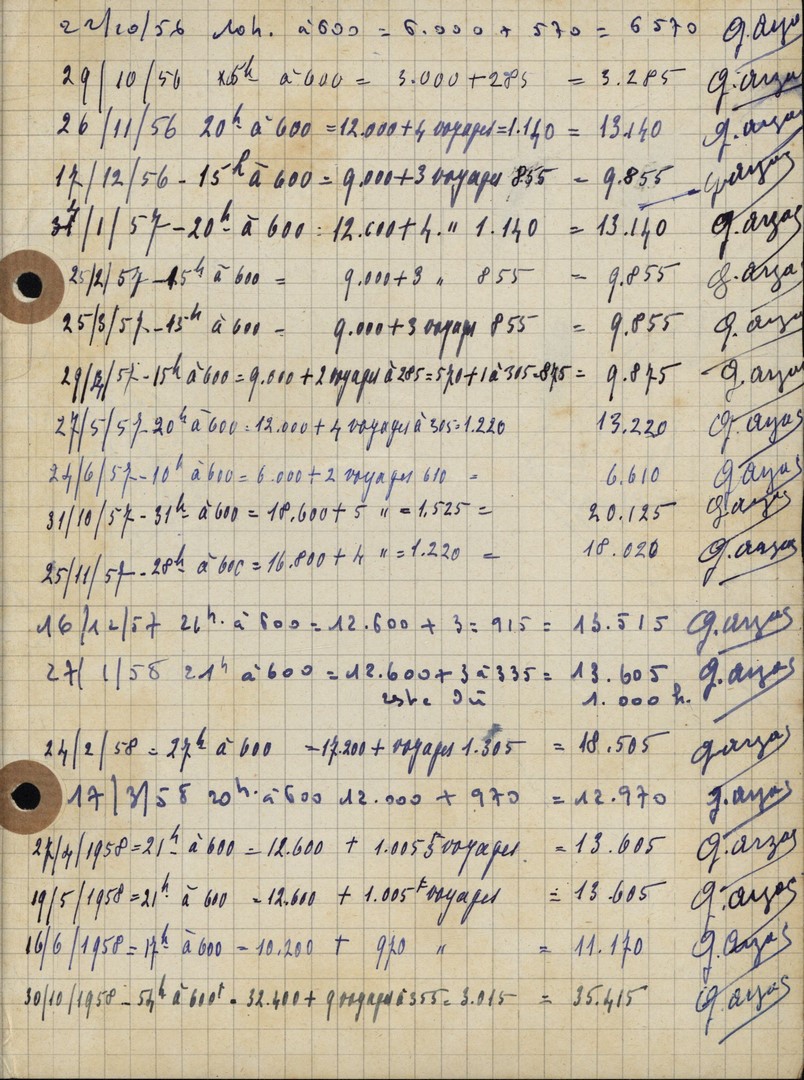 22/10/56 10h. à 600 = 6.000 + 570 = 6570 g.arzas
29/10/56 5h à 600 = 3.000 + 285 = 3.285 g.arzas
26/11/56 20h à 600 = 12.000 + 4 voyages = 1.140 = 13.140 g.arzas
17/12/56 - 15h à 600 = 9.000 + 3 voyages 855 = 9.855 g.arzas
/1/57 - 20h à 600 = 12.000 + 4 " 1.140 = 13.140 g.arzas
25/2/57 - 15h à 600 = 9.000 + 3 " 855 = 9.855 g.arzas
25/3/57 - 15h à 600 = 9.000 + 3 voyages 855 = 9.855 g.arzas
29/4/57 - 15h à 600 = 9.000 + 2 voyages à 285 = 570 + 1 à 305 = 875 = 9.875 g.arzas
27/5/57 - 20h à 600 = 12.000 + 4 voyages à 305 = 1.220 13.220 g.arzas
24/6/57 - 10h à 600 = 6.000 + 2 voyages 610 = 6.610 g.arzas
31/10/57 - 31h à 600 = 18.600 + 5 " = 1.525 = 20.125 g.arzas
25/11/57 - 28h à 600 = 16.800 + 4 " = 1.220 = 18.020 g.arzas
16/12/57 21h. à 600 = 12.600 + 3 = 915 = 13.515 g.arzas
27/1/58 21h à 600 = 12.600 + 3 à 335 = 13.605 g.arzas
reste dû 1.000 h.
24/2/58 = 27h à 600 - 17.200 + voyages 1.305 = 18.505 g.arzas
17/3/58 20h. à 600 12.000 + 970 = 12.970 g.arzas
27/4/1958 = 21h à 600 - 12.600 + 1.005 voyages = 13.605 g.arzas
19/5/1958 = 21h à 600 - 12.600 + 1.005 voyages = 13.605 g.arzas
16/6/1958 = 17h à 600 - 10.200 + 970 " = 11.170 g.arzas
30/10/1958 - 54h à 600f - 32.400 + 9 voyages à 355 = 3.015 = 35.415 g.arzas